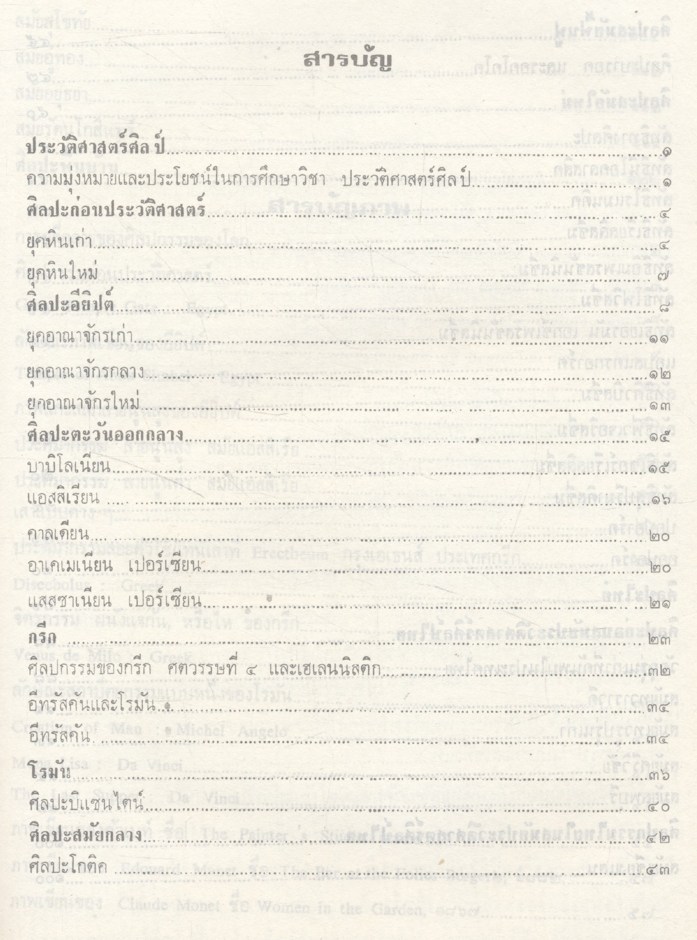 สารบัญ
ประวัติศาสตร์ศิลป์ ๑
ความมุ่งหมายและประโยชน์ในการศึกษาวิชา ประวัติศาสตร์ศิลป์ ๑
ศิลปะก่อนประวัติศาสตร์ ๔
ยุคหินเก่า ๔
ยุคหินใหม่ ๗
ศิลปะอียิปต์ ๘
ยุคอาณาจักรเก่า ๑๑
ยุคอาณาจักรกลาง ๑๒
ยุคอาณาจักรใหม่ ๑๓
ศิลปะตะวันออกกลาง ๑๕
บาบิโลเนียน ๑๕
แอสสิเรียน ๑๖
คาลเดียน ๒๐
อาเคเมเนียน เปอร์เซียน ๒๐
แสสซาเนียน เปอร์เซียน ๒๑
กรีก ๒๓
ศิลปกรรมของกรีก ศตวรรษที่ ๔ และเฮเลนนิสติก ๓๒
อีทรัสคันและโรมัน ๓๔
อีทรัสคัน ๓๔
โรมัน ๓๖
ศิลปะบิแซนไตน์ ๔๐
ศิลปะสมัยกลาง ๔๒
ศิลปะโกติค ๔๓